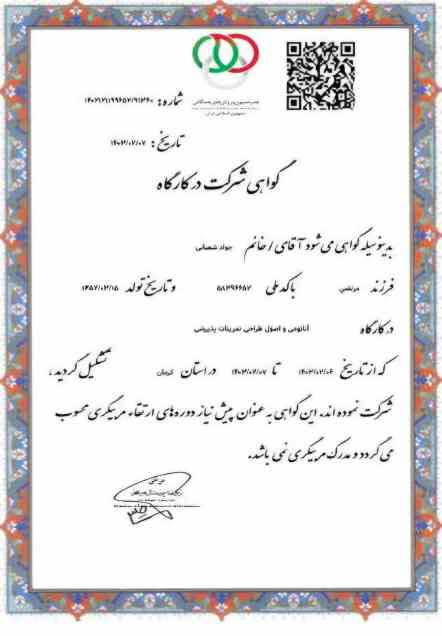 شماره: ۱۴۰۲۱۲۱۱۹۹۶۵۲/۹۱۲۶۰
جمهوری اسلامی ایران
تاریخ: ۱۴۰۳/۰۲/۰۷
گواهی شرکت در کارگاه
بدینوسیله گواهی می شود آقای / خانم جواد شعبانی
فرزند مرتضی با کد ملی ۵۸۲۹۶۶۵۷ و تاریخ تولد ۱۳۵۷/۰۲/۱۵
در کارگاه آناتومی و اصول طراحی تمرینات پذیرشی
که از تاریخ ۱۴۰۳/۰۲/۰۶ تا ۱۴۰۳/۰۲/۰۷ در استان کرمان تشکیل گردید ،
شرکت نموده اند. این گواهی به عنوان پیش نیاز دوره های ارتقاء مربیگری محسوب
می گردد و مدرک مربیگری نمی باشد.